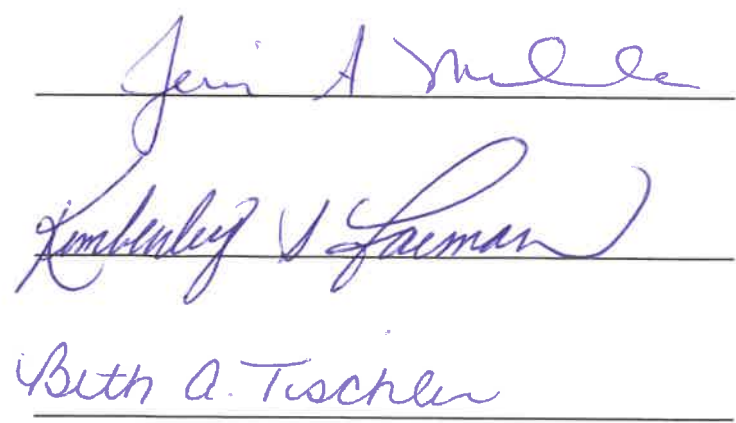 Jeri A
Kimberley S Laeman
Beth A. Tischler